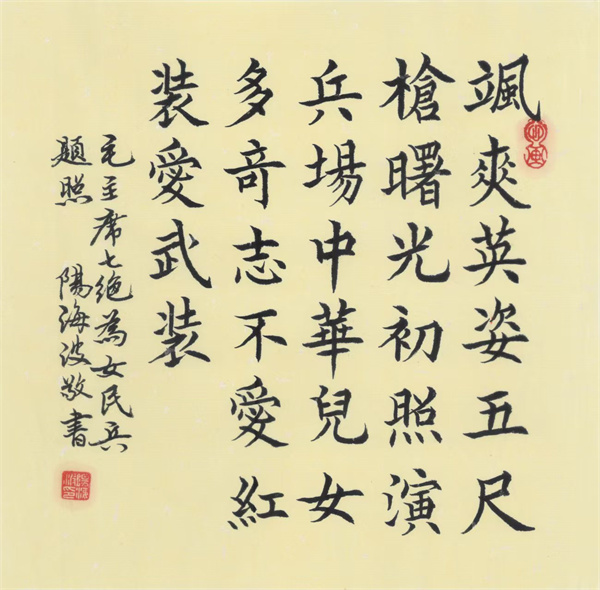 颯爽英姿五尺
槍曙光初照演
兵場中華兒女
多奇志不愛紅
装愛武装
毛主席七絶為女民兵
題照 陽海波敬書